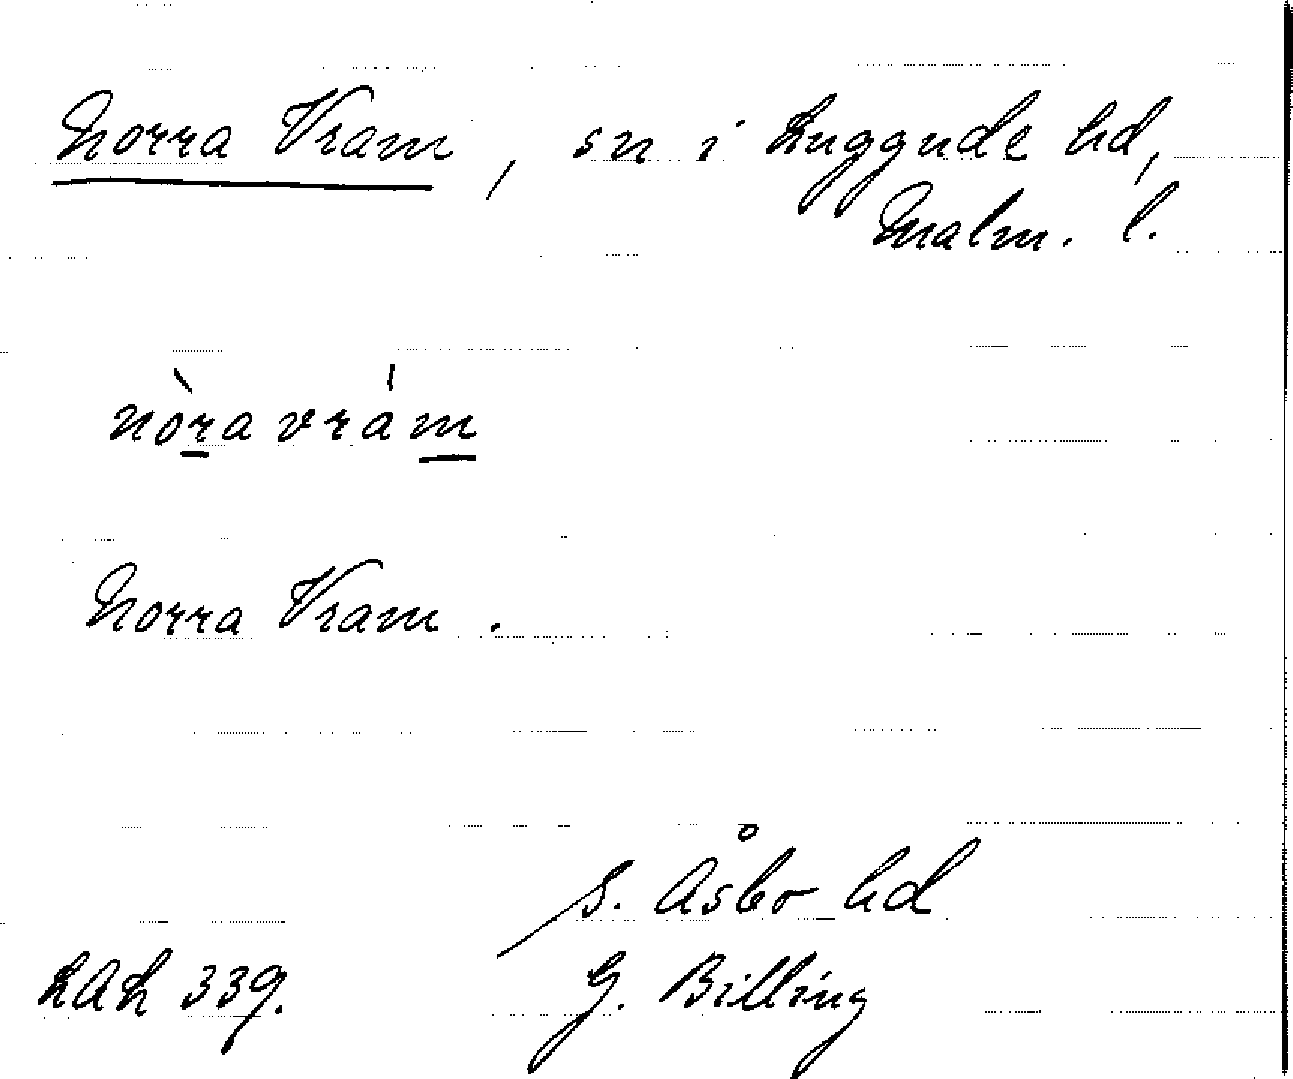 Norra Vram, sn i Luggude hd,
Malm. l.
nòra vrám
Norra Vram.
S. Åsbo hd
LAL 339. G. Billing